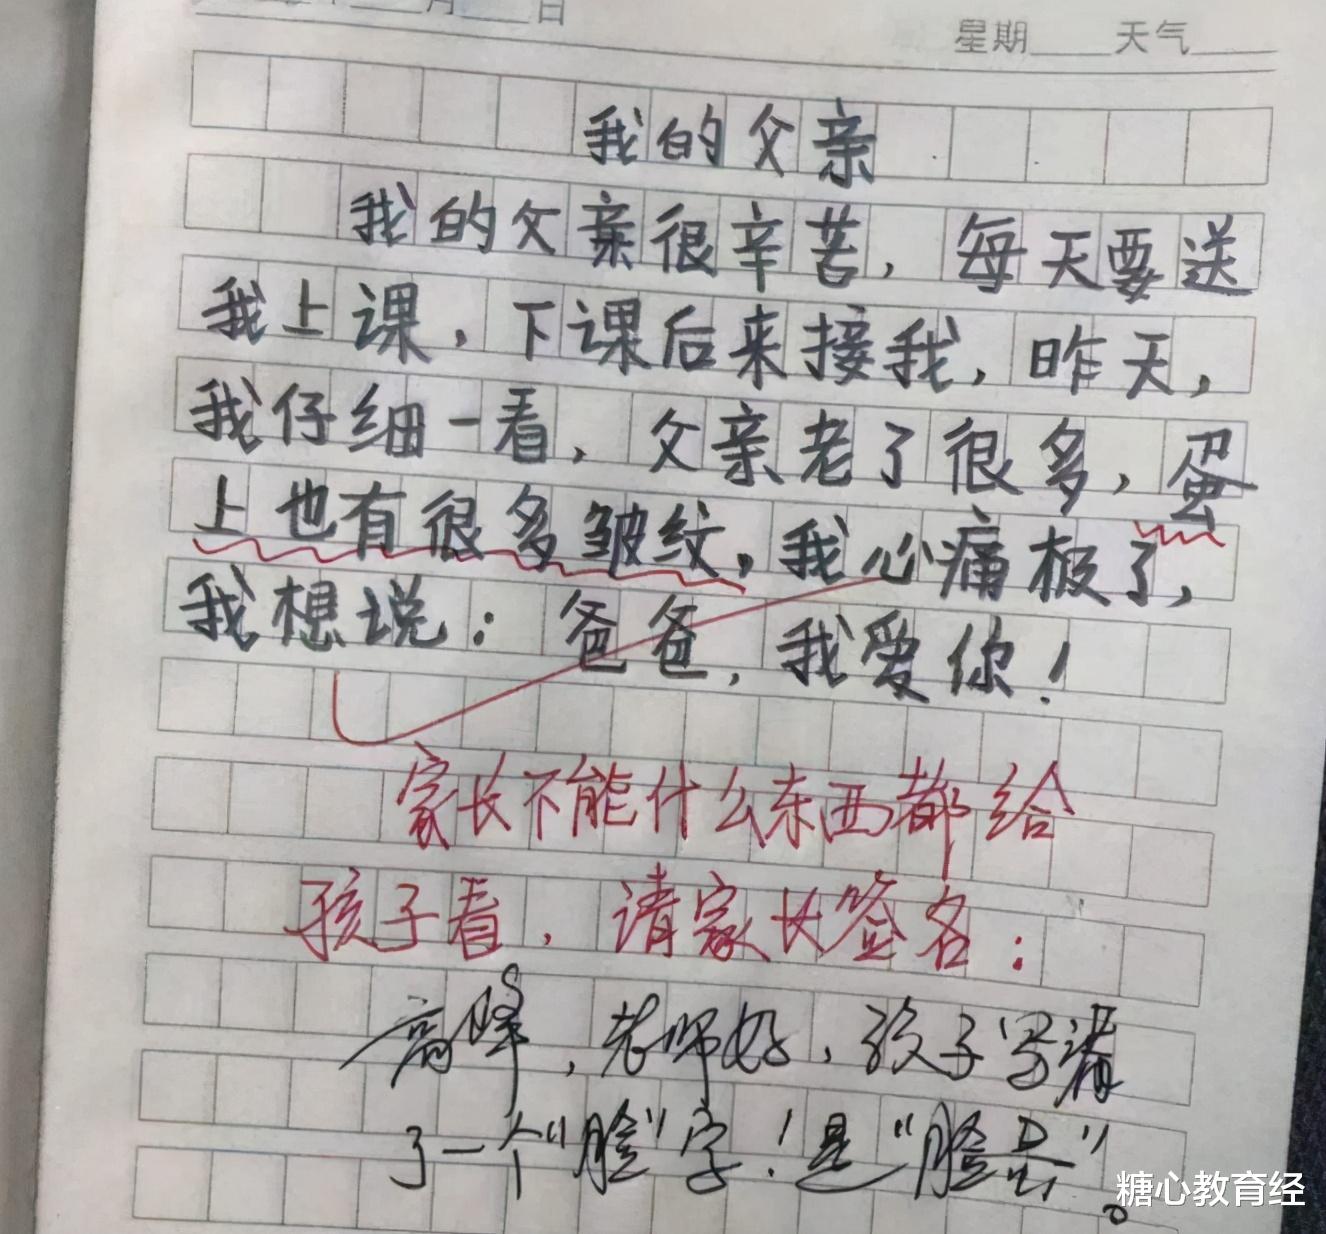 月 日
星期 天气
我的父亲
我的父亲很辛苦，每天要送
我上课，下课后来接我，昨天，
我仔细一看，父亲老了很多，蛋
上也有很多皱纹，我心痛极了，
我想说：爸爸，我爱你！
家长不能什么东西都给
孩子看，请家长签名：
高峰，老师好，孩子写漏
了一个“脸”字！是“脸蛋”。
糖心教育经